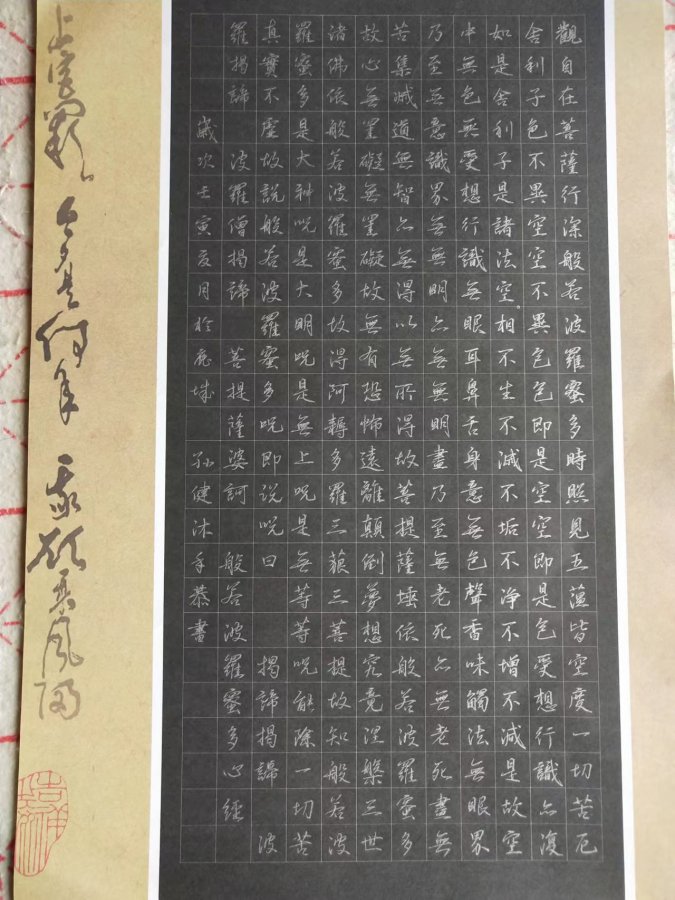 觀自在菩薩行深般若波羅蜜多時照見五蘊皆空度一切苦厄
舍利子色不異空空不異色色即是空空即是色受想行識亦復
如是舍利子是諸法空相不生不滅不垢不淨不增不減是故空
中無色無受想行識無眼耳鼻舌身意無色聲香味觸法無眼界
乃至無意識界無無明亦無無明盡乃至無老死亦無老死盡無
苦集滅道無智亦無得以無所得故菩提薩埵依般若波羅蜜多
故心無罣礙無罣礙故無有恐怖遠離顛倒夢想究竟涅槃三世
諸佛依般若波羅蜜多故得阿耨多羅三藐三菩提故知般若波
羅蜜多是大神呪是大明呪是無上呪是無等等呪能除一切苦
真實不虛故說般若波羅蜜多呪即説呪曰 揭諦揭諦 波
羅揭諦 波羅僧揭諦 菩提薩婆訶 般若波羅蜜多心經
歲次壬寅夏月於鹿城 孫健沐手恭書
上宮闕。今夕是何年 我欲乘風歸